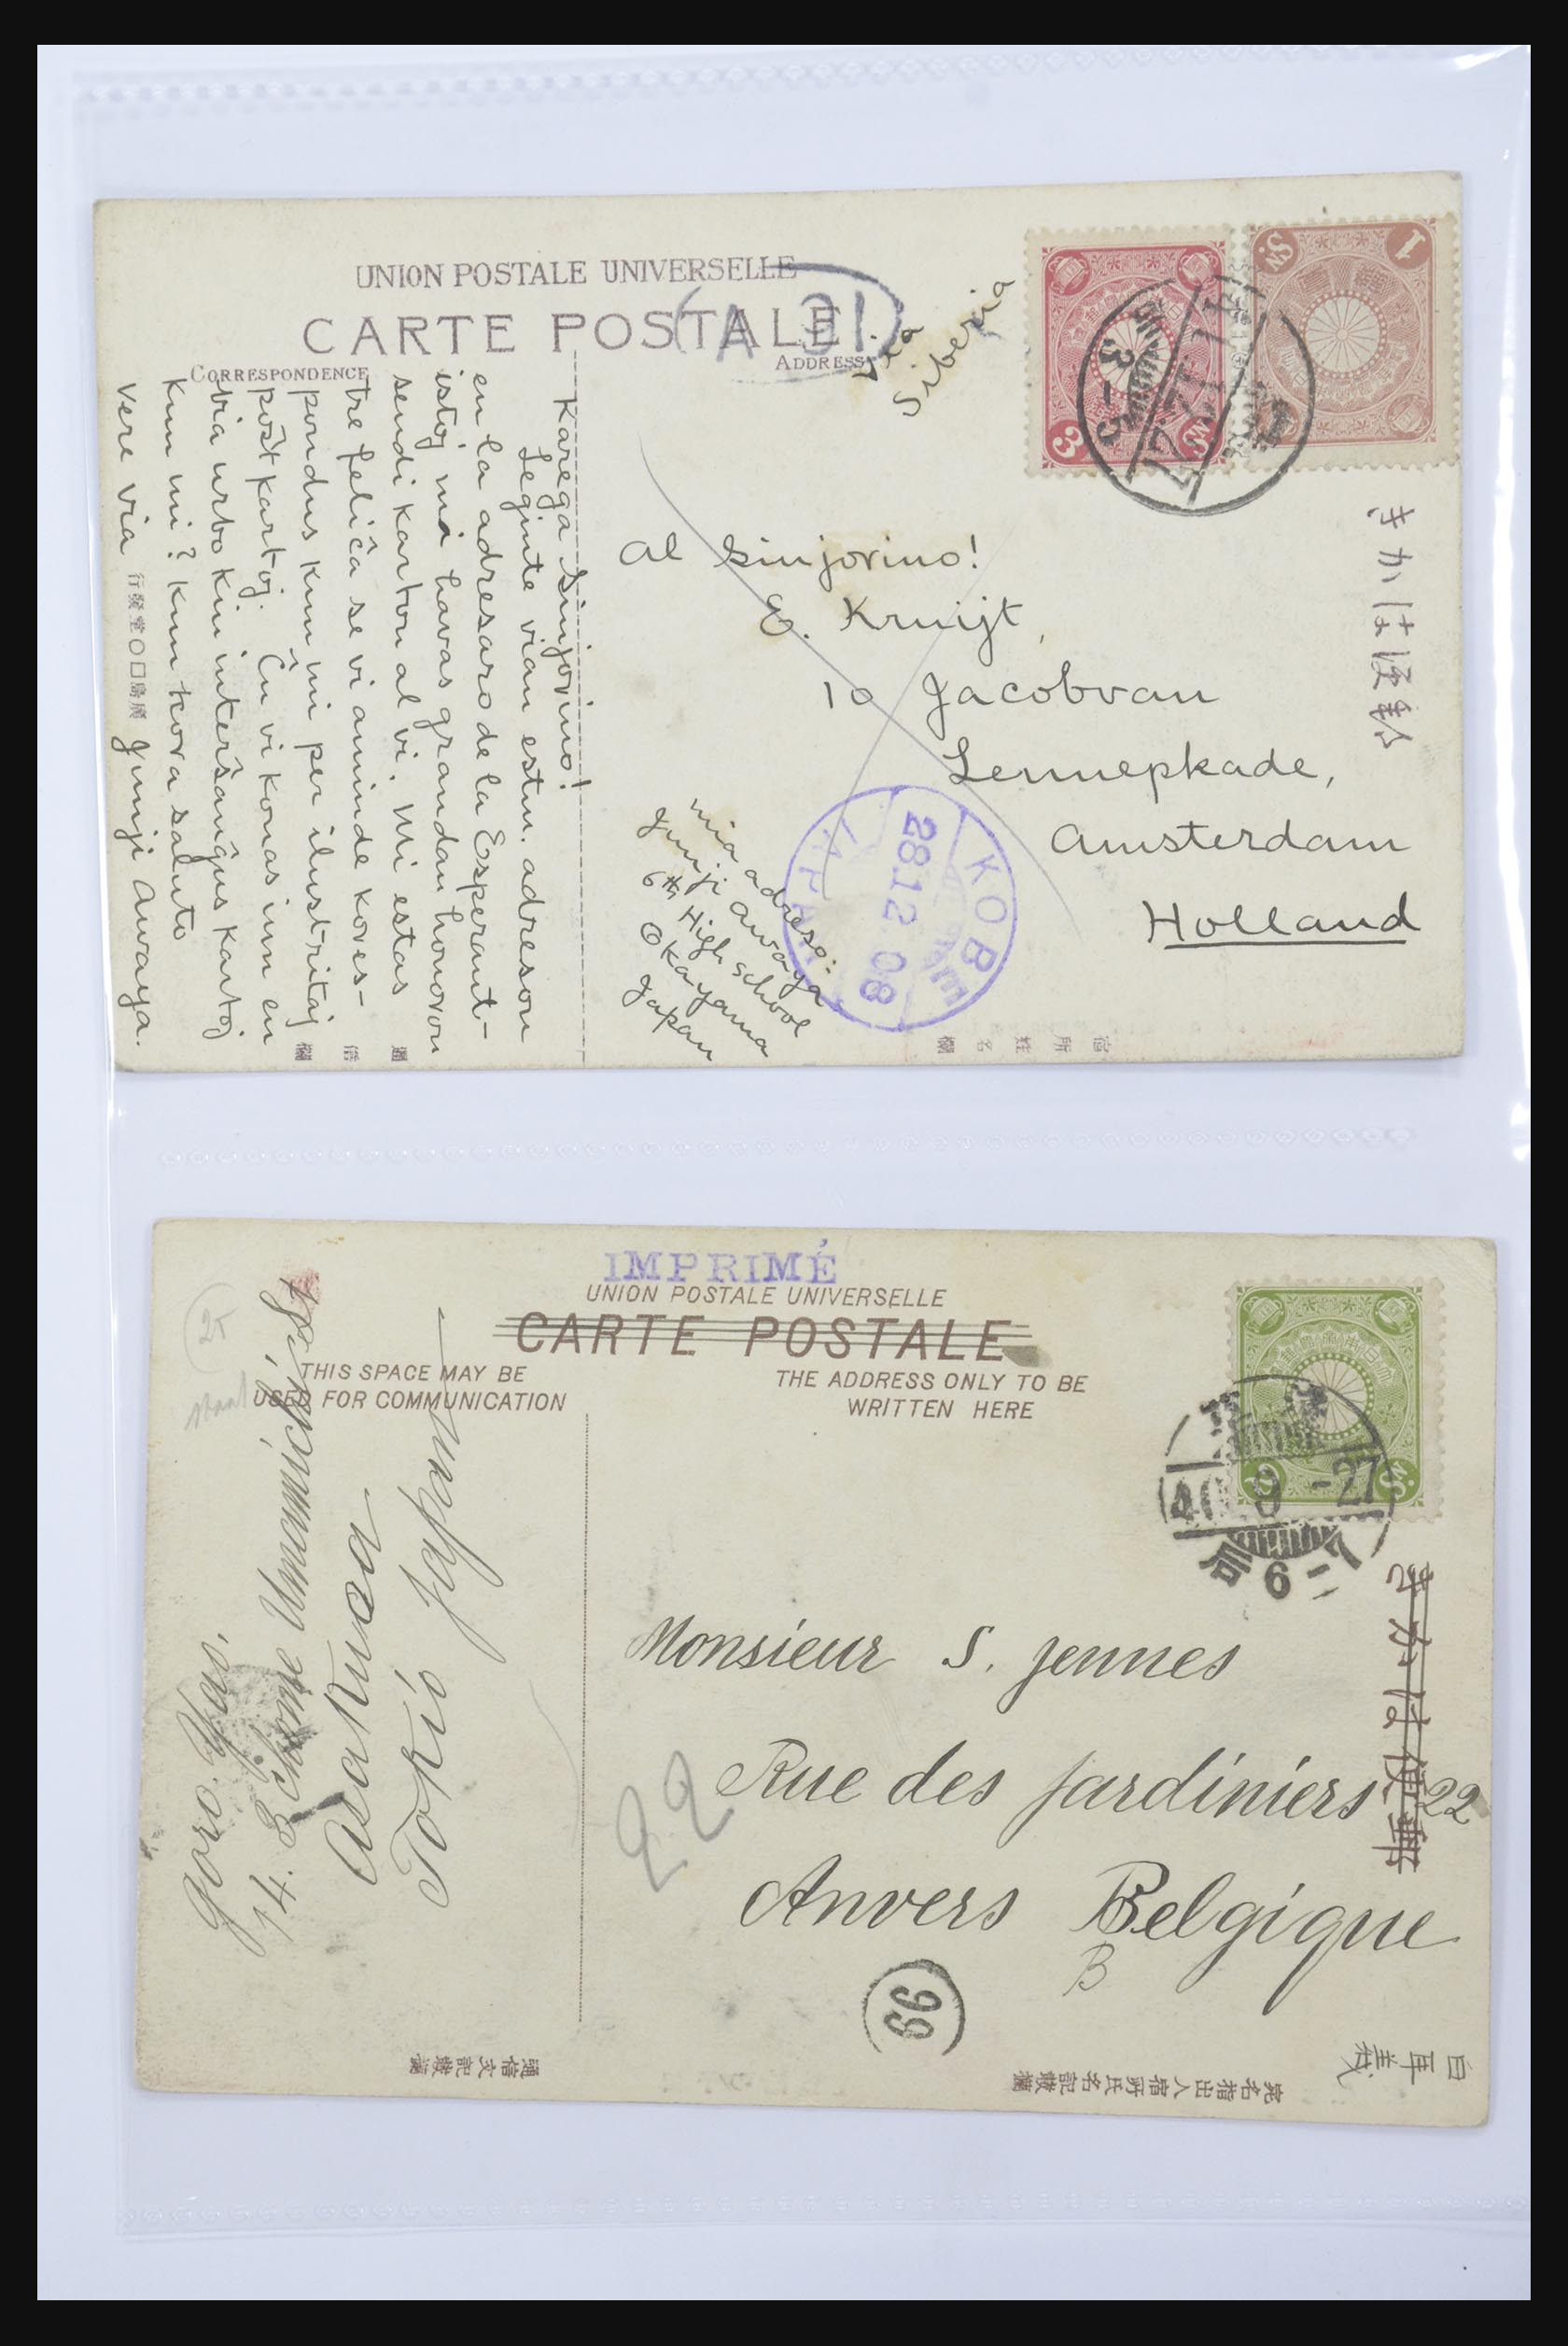 UNION POSTALE UNIVERSELLE
CARTE POSTALE
A 31
CORRESPONDENCE
ADDRESS
via
Siberia
1
3
Sn
3-5
きかは便郵
Karega Sinjorino!
Leginte vian estin. adreson
en la adresaro de la Esperant-
istoj mi havas grandan honoron
sendi karton al vi. Mi estas
tre feliĉa se vi aminde kores-
pondus kun mi per ilustritaj
poŝtkartoj. Ĉu vi konas iun en
via urbo kiu interŝanĝus kartoj
kun mi? Kun kora saluto
vere via
Junji Awaya.
行發堂〇口島廣
Al Sinjorino!
E. Kruijt,
10 Jacobvan
Lennepkade,
Amsterdam
Holland
mia adreso:
Junji Awaya
6th High school
Okayama
Japan
KOBE
28.12 08
JAPAN
通信欄
宿所姓名欄
IMPRIMÉ
UNION POSTALE UNIVERSELLE
CARTE POSTALE
THIS SPACE MAY BE
USED FOR COMMUNICATION
THE ADDRESS ONLY TO BE
WRITTEN HERE
25
2
Sn
40 9 -27
6
きかは便郵
Goro. Yas.
14. 3 chome Umamichi St
Asakusa
Tokio Japan
Monsieur S. Jennes
Rue des Jardiniers 22
22
Anvers Belgique
B
99
通信文記載欄
宛名指出人宿所氏名記載欄
白耳義